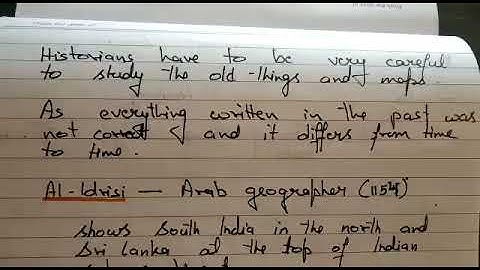 Historians have to be very careful
to study the old things and maps.
As everything written in the past was
not correct and it differs from time
to time.
Al-Idrisi — Arab geographer (1154)
shows South India in the north and
Sri Lanka at the top of Indian